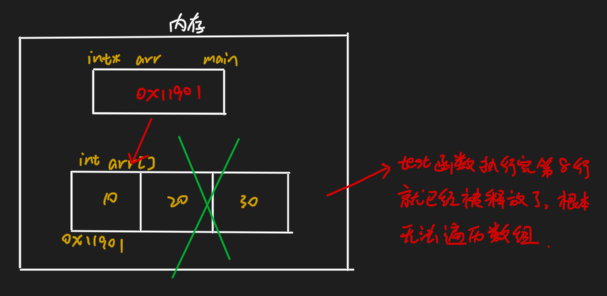 内存
int* arr main
0x11901
int arr[]
10 20 30
0x11901
test函数执行完第8行
就已经被释放了，根本
无法遍历数组.